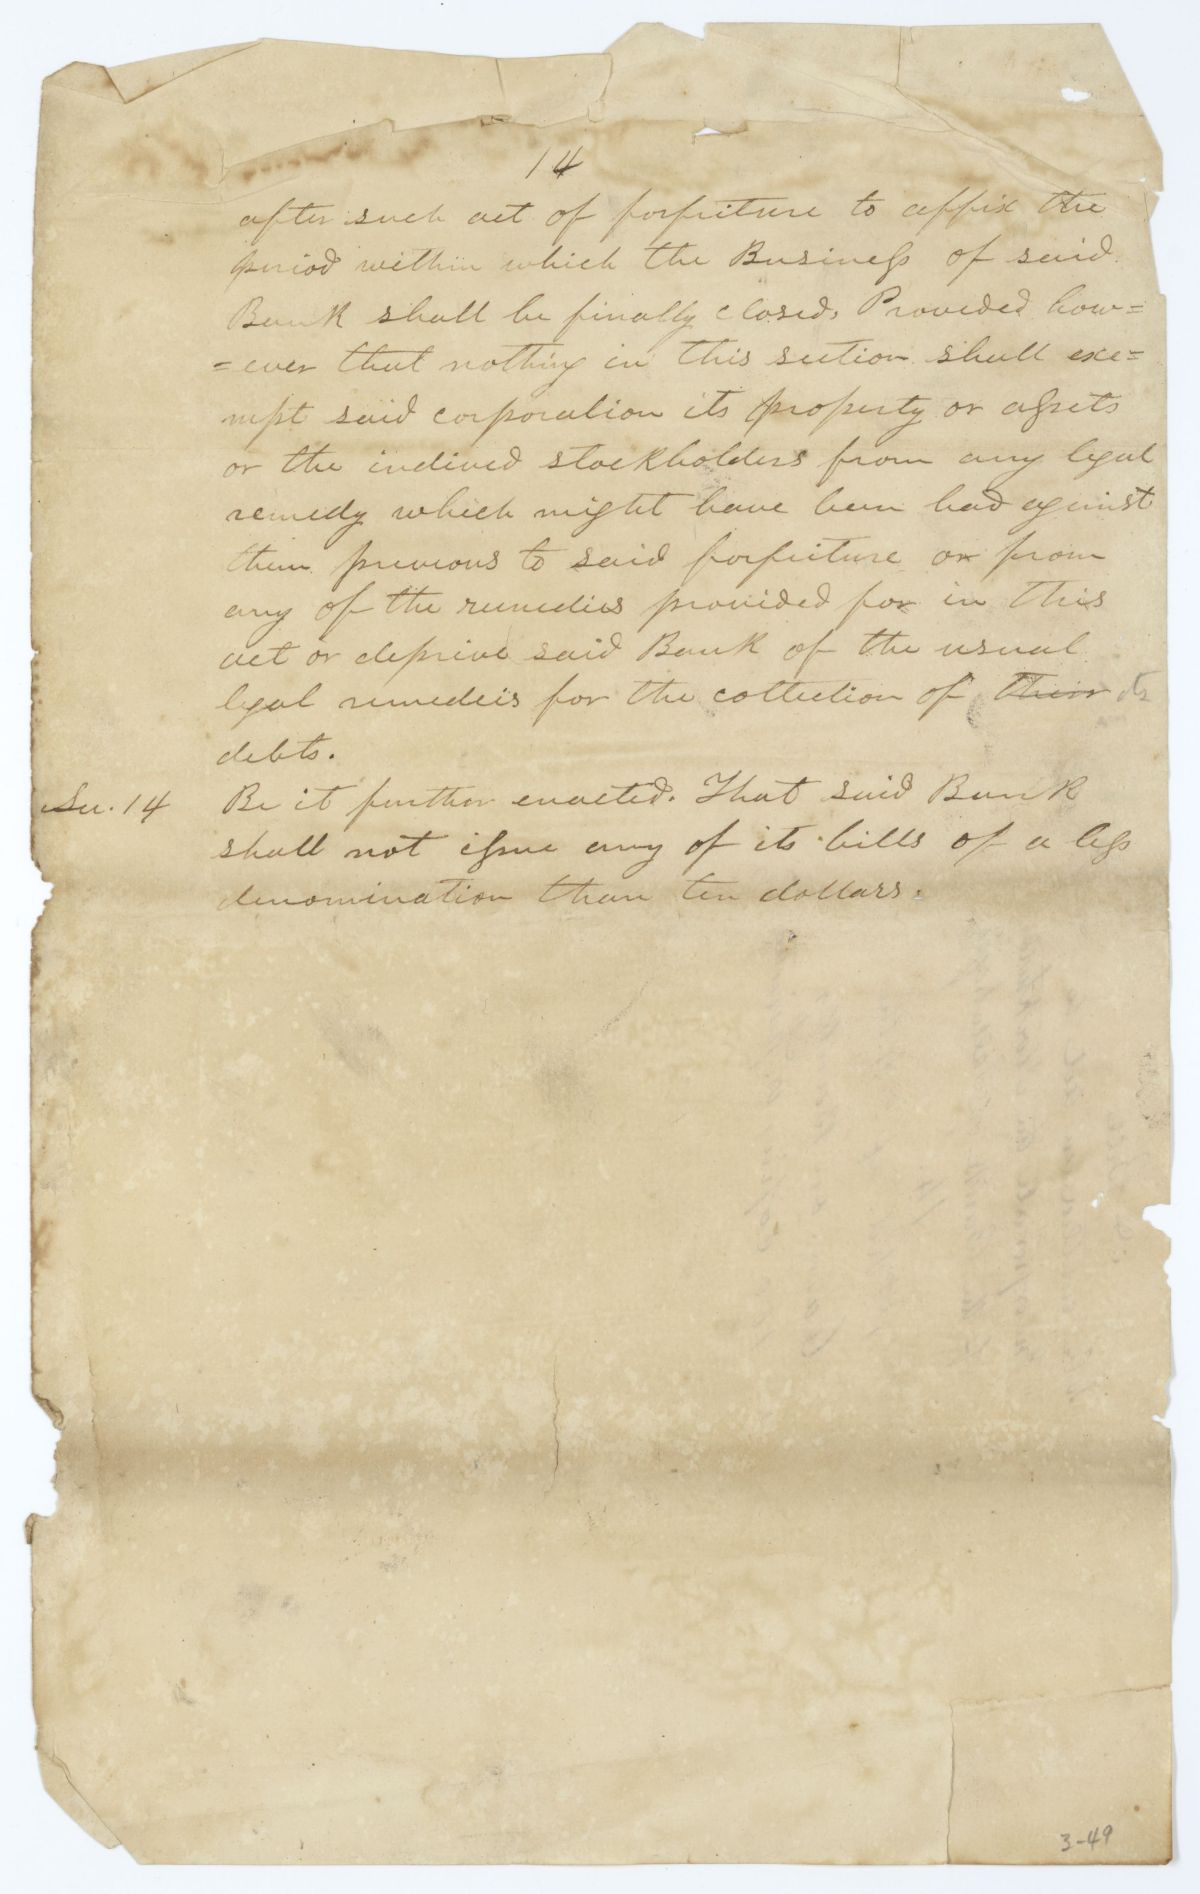 14
after such act of forfeiture to affix the
period within which the Business of said
Bank shall be finally closed, Provided how=
=ever that nothing in this section shall exe=
mpt said corporation its property or assets
or the indived stockholders from any legal
remedy which might have been had against
them previous to said forfeiture or from
any of the remedies provided for in this
act or deprive said Bank of the usual
legal remedeis for the collection of their its
debts.
Sec. 14 Be it further enacted. That said Bank
shall not issue any of its bills of a less
denomination than ten dollars.
3-49